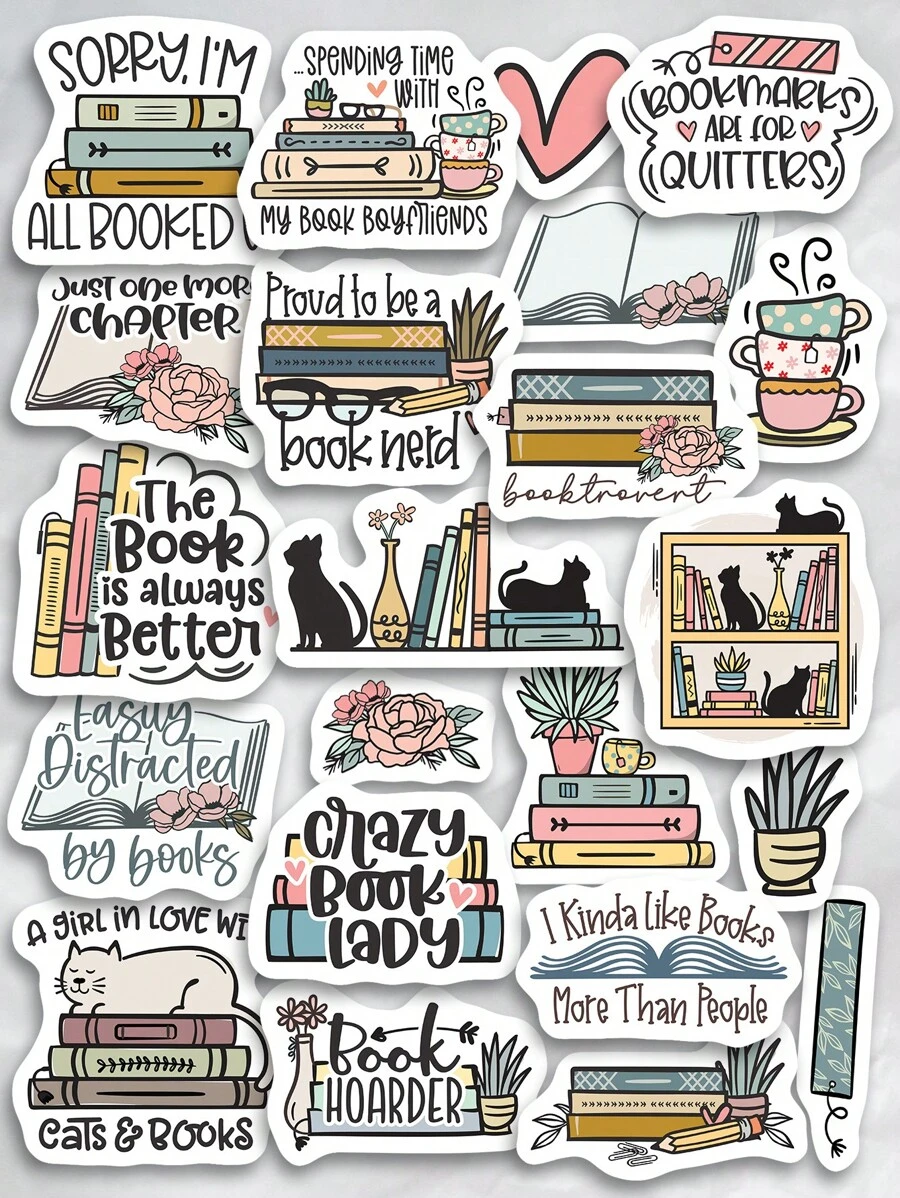 SORRY, I'M
ALL BOOKED
...SPENDING TIME
WITH
MY BOOK BOYFRIENDS
BOOKMARKS
ARE FOR
QUITTERS
JUST ONE MOR
CHAPTER
Proud to be a
book nerd
booktrovert
The
Book
is always
Better
Easily
Distracted
by books
crazy
BOOK
LADY
I Kinda Like Books
More Than People
A GIRL IN LOVE WI
CATS & BOOKS
Book
HOARDER